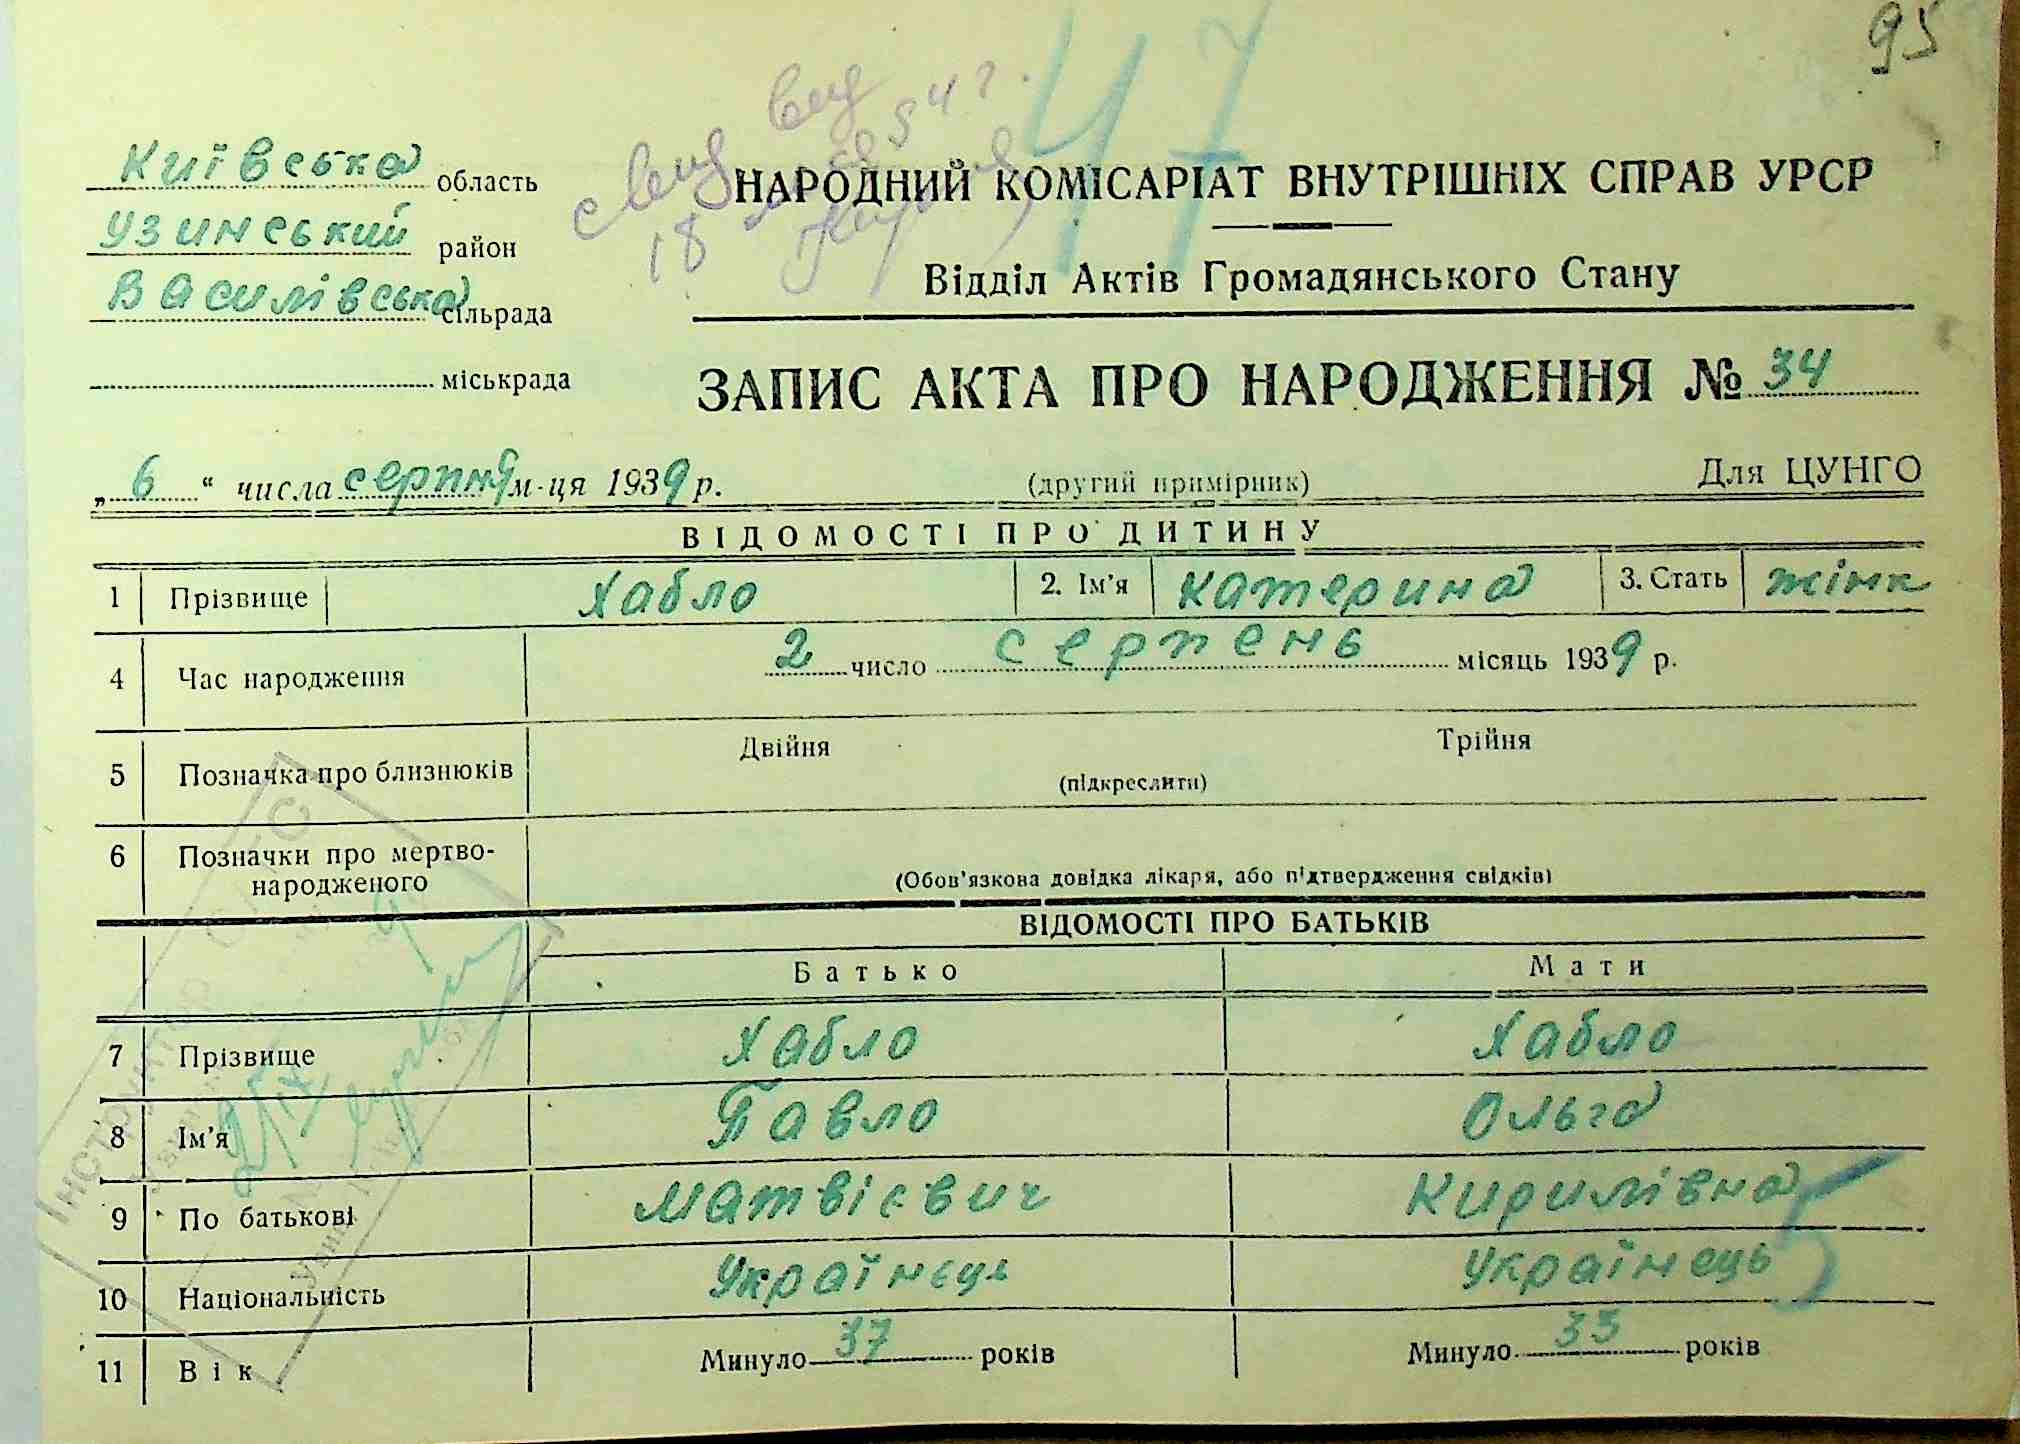 95
47
Київська область
Узинський район
Василівська сільрада
міськрада
НАРОДНИЙ КОМІСАРІАТ ВНУТРІШНІХ СПРАВ УРСР
Відділ Актів Громадянського Стану
ЗАПИС АКТА ПРО НАРОДЖЕННЯ № 34
„6“ числа серпня м-ця 1939 р. (другий примірник) Для ЦУНГО
ВІДОМОСТІ ПРО ДИТИНУ
1 Прізвище Хабло 2. Ім'я Катерина 3. Стать жінк
4 Час народження 2 число серпень місяць 1939 р.
5 Позначка про близнюків Двійня Трійня
(підкреслити)
6 Позначки про мертво-
народженого (Обов'язкова довідка лікаря, або підтвердження свідків)
ВІДОМОСТІ ПРО БАТЬКІВ
Батько Мати
7 Прізвище Хабло Хабло
8 Ім'я Павло Ольга
9 По батькові Матвієвич Кирилівна
10 Національність Українець Українець
11 Вік Минуло 37 років Минуло 33 років
Інструктор